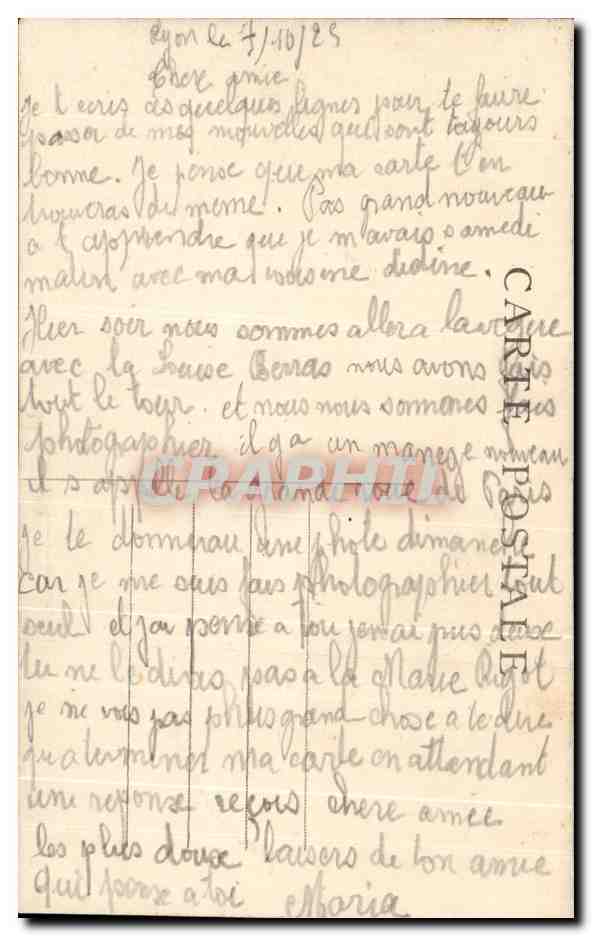 Lyon le 7/10/25
Chere amie
Je t ecris ces quelques lignes pour te faire
passer de mes nouvelles qui sont toujours
bonne. Je pense que ma carte t en
trouveras de meme. Pas grand nouveau
a t apprendre que je m avais samedi
matin avec ma cousine didine.
Hier soir nous sommes aller a la vogue
avec la Louise nous avons fais
tout le tour. et nous nous sommes fais
photographier il y a un manege nouveau
il s appelle la grande roue de Paris
je te donnerau une phote dimanche
car je me suis fais photographier tout
seul et j ai pense a toi j en ai pris deux
tu ne le diras pas a la Marie Rigot
je ne vois pas plus grand chose a te dire
qu a terminer ma carte en attendant
une reponse reçois chere amie
les plus doux baisers de ton amie
qui pense a toi Maria
CARTE POSTALE
CPAPHIL